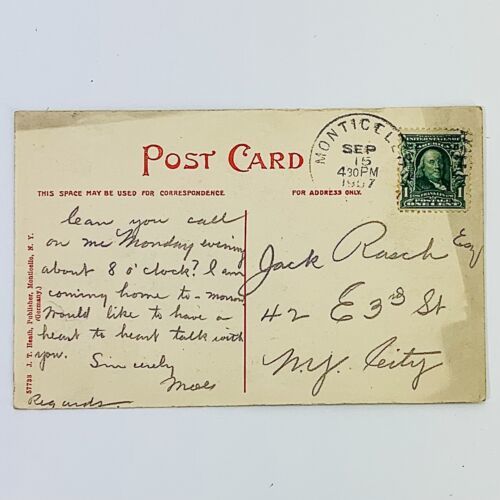 POST CARD
THIS SPACE MAY BE USED FOR CORRESPONDENCE.
FOR ADDRESS ONLY.
MONTICELLO
SEP
15
4 30 PM
1907
1
1
Can you call
on me Monday evening
about 8 o'clock? I am
coming home to-morrow
Would like to have a
heart to heart talk with
you.
Sincerely
Regards.
Jack Rasch Esq
42 E 3rd St
N.Y. City
57738 J. T. Heath, Publisher, Monticello, N. Y.
(Germany.)